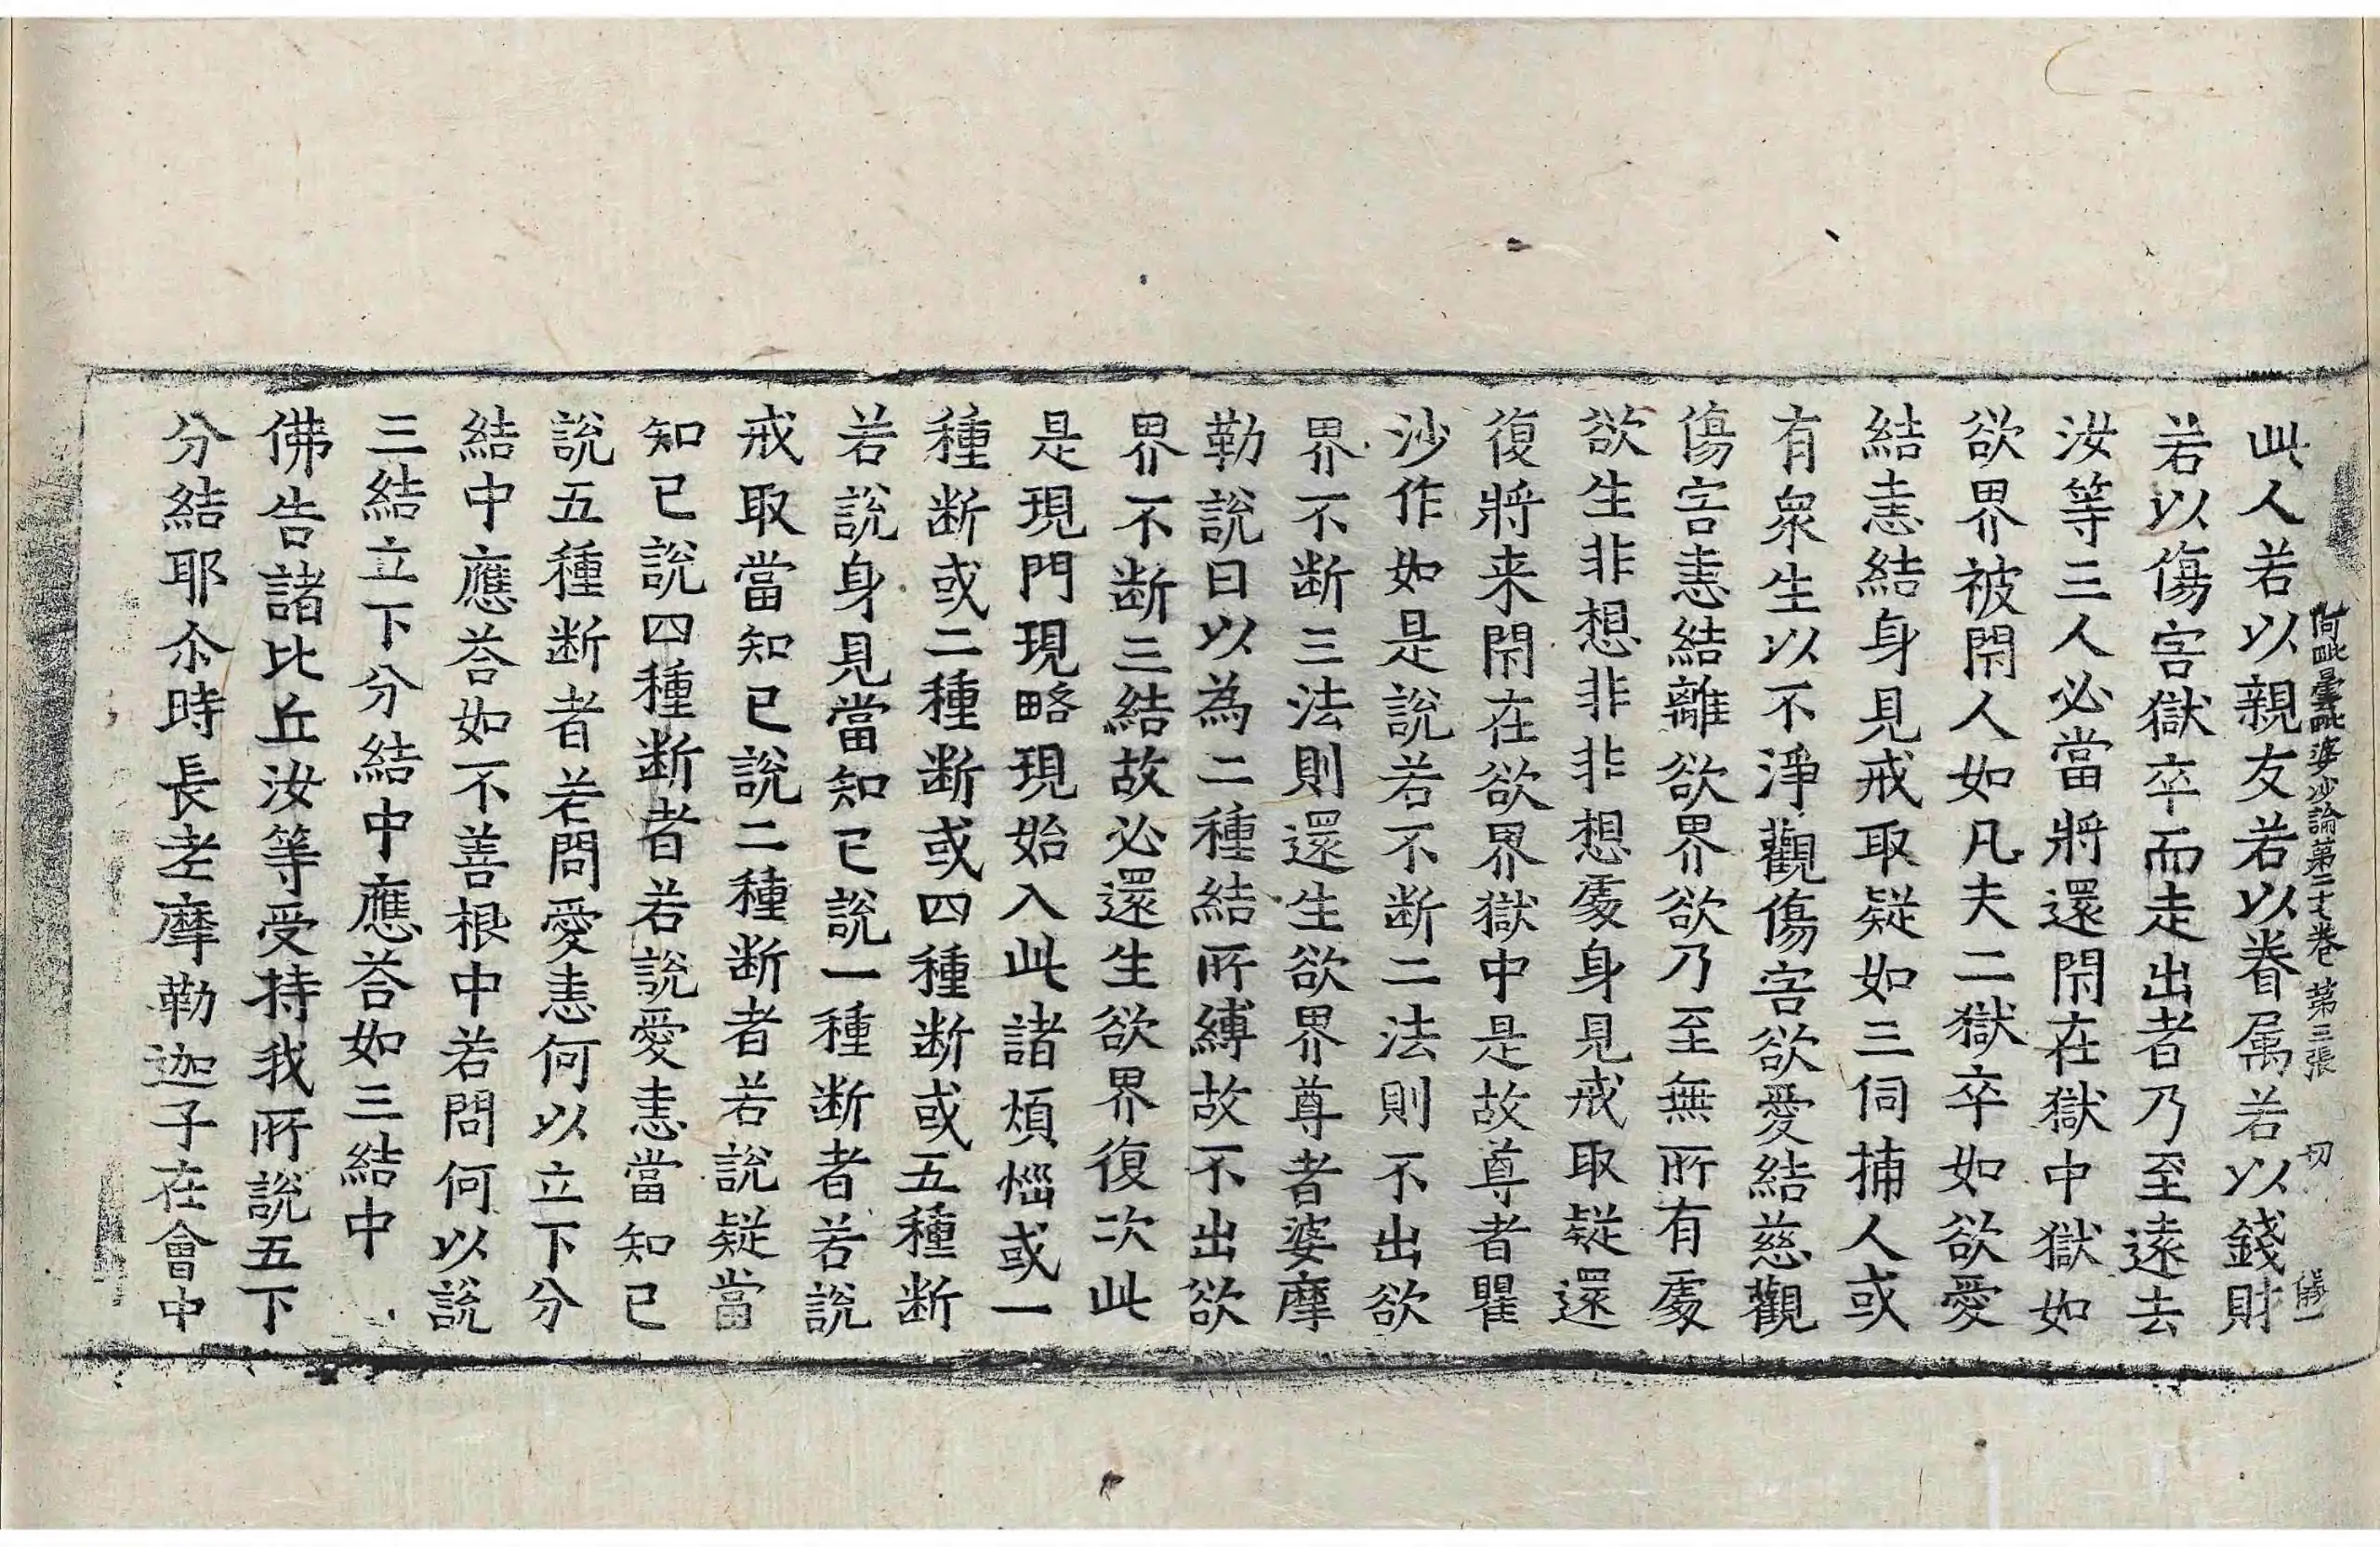 阿毗曇毗婆沙論第二十七卷 第三張 切
此人若以親友若以眷属若以錢財
若以傷害獄卒而走出者乃至遠去
汝等三人必當將還閇在獄中獄如
欲界被閇人如凡夫二獄卒如欲愛
結恚結身見戒取疑如三伺捕人或
有衆生以不淨觀傷害欲愛結慈觀
傷害恚結離欲界欲乃至無所有處
欲生非想非非想處身見戒取疑還
復將来閇在欲界獄中是故尊者瞿
沙作如是說若不断二法則不出欲
界不断三法則還生欲界尊者婆摩
勒說曰以為二種結所縛故不出欲
界不断三結故必還生欲界復次此
是現門現略現始入此諸煩惱或一
種断或二種断或四種断或五種断
若說身見當知已說一種断者若說
戒取當知已說二種断者若說疑當
知已說四種断者若說愛恚當知已
說五種断者若問愛恚何以立下分
結中應荅如不善根中若問何以說
三結立下分結中應荅如三結中
佛告諸比丘汝等受持我所說五下
分結耶尒時長老摩勒迦子在會中